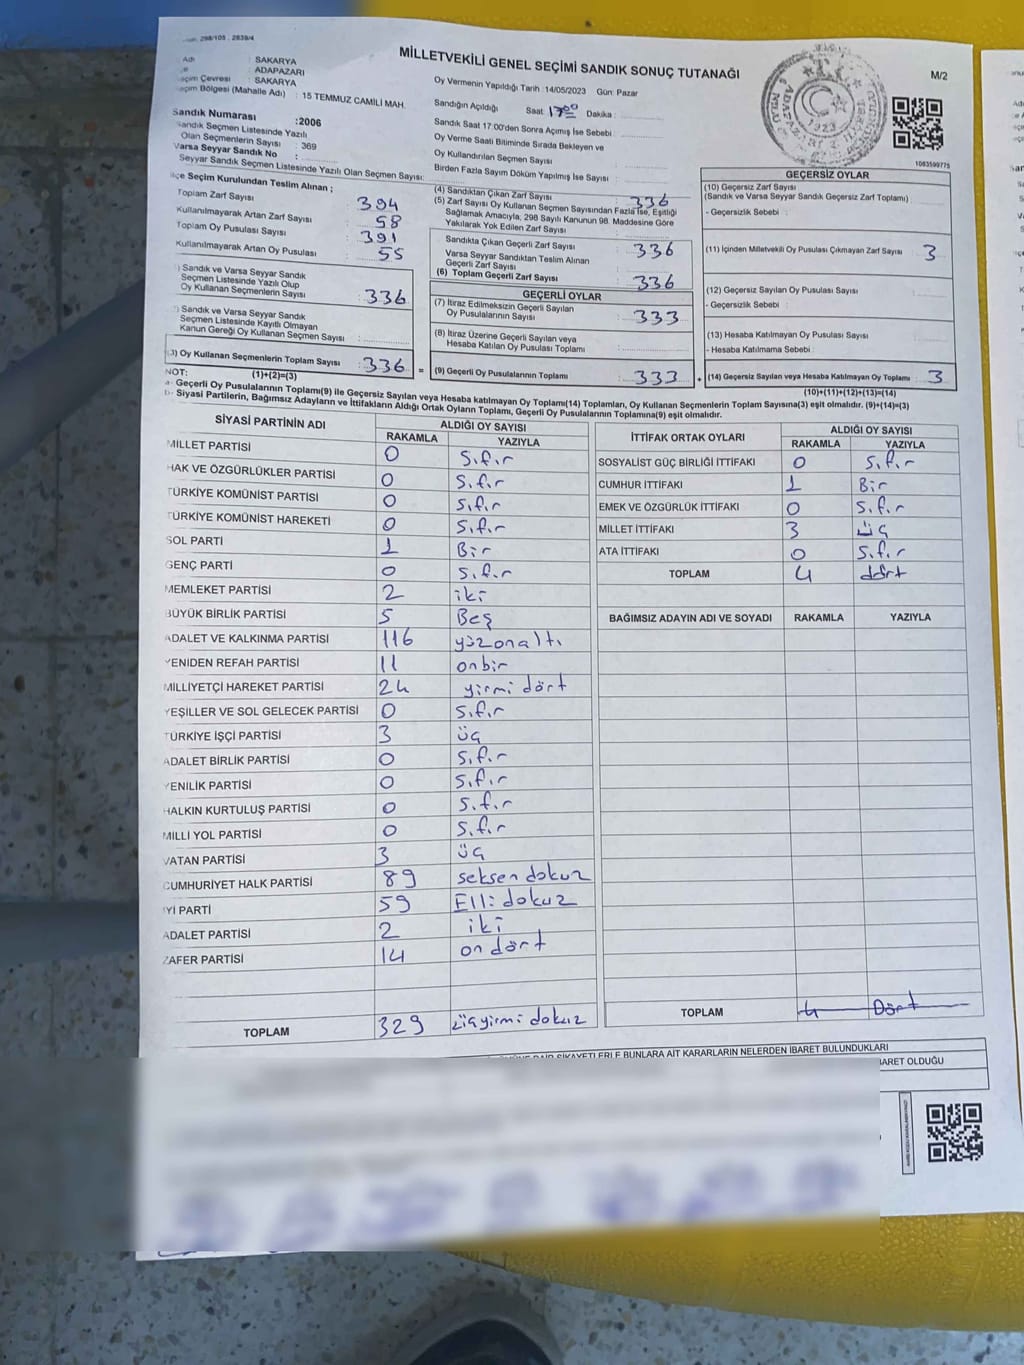 298/105 . 2839/4
MİLLETVEKİLİ GENEL SEÇİMİ SANDIK SONUÇ TUTANAĞI
M/2
Adı : SAKARYA
: ADAPAZARI
Seçim Çevresi : SAKARYA
Seçim Bölgesi (Mahalle Adı) : 15 TEMMUZ CAMİLİ MAH.
Sandık Numarası :2006
Sandık Seçmen Listesinde Yazılı
Olan Seçmenlerin Sayısı : 369
Varsa Seyyar Sandık No :
Seyyar Sandık Seçmen Listesinde Yazılı Olan Seçmen Sayısı:
Oy Vermenin Yapıldığı Tarih :14/05/2023 Gün: Pazar
Sandığın Açıldığı Saat 17:00 Dakika :
Sandık Saat 17:00'den Sonra Açılmış İse Sebebi :
Oy Verme Saati Bitiminde Sırada Bekleyen ve
Oy Kullandırılan Seçmen Sayısı :
Birden Fazla Sayım Döküm Yapılmış İse Sayısı :
1923
1083590775
İlçe Seçim Kurulundan Teslim Alınan ;
Toplam Zarf Sayısı : 394
Kullanılmayarak Artan Zarf Sayısı : 58
Toplam Oy Pusulası Sayısı : 391
Kullanılmayarak Artan Oy Pusulası : 55
) Sandık ve Varsa Seyyar Sandık
Seçmen Listesinde Yazılı Olup
Oy Kullanan Seçmenlerin Sayısı : 336
) Sandık ve Varsa Seyyar Sandık
Seçmen Listesinde Kayıtlı Olmayan
Kanun Gereği Oy Kullanan Seçmen Sayısı :
(3) Oy Kullanan Seçmenlerin Toplam Sayısı : 336 =
(4) Sandıktan Çıkan Zarf Sayısı : 336
(5) Zarf Sayısı Oy Kullanan Seçmen Sayısından Fazla İse, Eşitliği
Sağlamak Amacıyla, 298 Sayılı Kanunun 98. Maddesine Göre
Yakılarak Yok Edilen Zarf Sayısı :
Sandıkta Çıkan Geçerli Zarf Sayısı : 336
Varsa Seyyar Sandıktan Teslim Alınan
Geçerli Zarf Sayısı
(6) Toplam Geçerli Zarf Sayısı : 336
GEÇERLİ OYLAR
(7) İtiraz Edilmeksizin Geçerli Sayılan
Oy Pusulalarının Sayısı : 333
(8) İtiraz Üzerine Geçerli Sayılan veya
Hesaba Katılan Oy Pusulası Toplamı :
(9) Geçerli Oy Pusulalarının Toplamı : 333 +
GEÇERSİZ OYLAR
(10) Geçersiz Zarf Sayısı
(Sandık ve Varsa Seyyar Sandık Geçersiz Zarf Toplamı) :
- Geçersizlik Sebebi :
(11) İçinden Milletvekili Oy Pusulası Çıkmayan Zarf Sayısı : 3
(12) Geçersiz Sayılan Oy Pusulası Sayısı :
- Geçersizlik Sebebi :
(13) Hesaba Katılmayan Oy Pusulası Sayısı :
- Hesaba Katılmama Sebebi :
(14) Geçersiz Sayılan veya Hesaba Katılmayan Oy Toplamı : 3
NOT: (1)+(2)=(3)
(10)+(11)+(12)+(13)=(14)
a- Geçerli Oy Pusulalarının Toplamı(9) ile Geçersiz Sayılan veya Hesaba katılmayan Oy Toplamı(14) Toplamları, Oy Kullanan Seçmenlerin Toplam Sayısına(3) eşit olmalıdır. (9)+(14)=(3)
b- Siyasi Partilerin, Bağımsız Adayların ve İttifakların Aldığı Ortak Oyların Toplamı, Geçerli Oy Pusulalarının Toplamına(9) eşit olmalıdır.
SİYASİ PARTİNİN ADI ALDIĞI OY SAYISI
RAKAMLA YAZIYLA
MİLLET PARTİSİ 0 Sıfır
HAK VE ÖZGÜRLÜKLER PARTİSİ 0 Sıfır
TÜRKİYE KOMÜNİST PARTİSİ 0 Sıfır
TÜRKİYE KOMÜNİST HAREKETİ 0 Sıfır
SOL PARTİ 1 Bir
GENÇ PARTİ 0 Sıfır
MEMLEKET PARTİSİ 2 iki
BÜYÜK BİRLİK PARTİSİ 5 Beş
ADALET VE KALKINMA PARTİSİ 116 yüzonaltı
YENİDEN REFAH PARTİSİ 11 onbir
MİLLİYETÇİ HAREKET PARTİSİ 24 yirmi dört
YEŞİLLER VE SOL GELECEK PARTİSİ 0 Sıfır
TÜRKİYE İŞÇİ PARTİSİ 3 üç
ADALET BİRLİK PARTİSİ 0 Sıfır
YENİLİK PARTİSİ 0 Sıfır
HALKIN KURTULUŞ PARTİSİ 0 Sıfır
MİLLİ YOL PARTİSİ 0 Sıfır
VATAN PARTİSİ 3 üç
CUMHURİYET HALK PARTİSİ 89 seksen dokuz
İYİ PARTİ 59 Elli dokuz
ADALET PARTİSİ 2 iki
ZAFER PARTİSİ 14 on dört
TOPLAM 329 üçyirmi dokuz
İTTİFAK ORTAK OYLARI ALDIĞI OY SAYISI
RAKAMLA YAZIYLA
SOSYALİST GÜÇ BİRLİĞİ İTTİFAKI 0 Sıfır
CUMHUR İTTİFAKI 1 Bir
EMEK VE ÖZGÜRLÜK İTTİFAKI 0 Sıfır
MİLLET İTTİFAKI 3 üç
ATA İTTİFAKI 0 Sıfır
TOPLAM 4 dört
BAĞIMSIZ ADAYIN ADI VE SOYADI RAKAMLA YAZIYLA
TOPLAM 4 Dört
ŞİKAYETLERLE BUNLARA AİT KARARLARIN NELERDEN İBARET BULUNDUKLARI
İBARET OLDUĞU